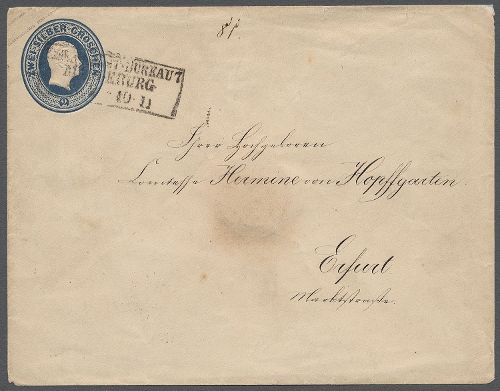 ZWEI SILBER-GROSCHEN
2
BUREAU 7
BURG
10 11
Ihrer Hochgeboren
Comtesse Hermine von Hopffgarten
Erfurt.
Marktstraße.